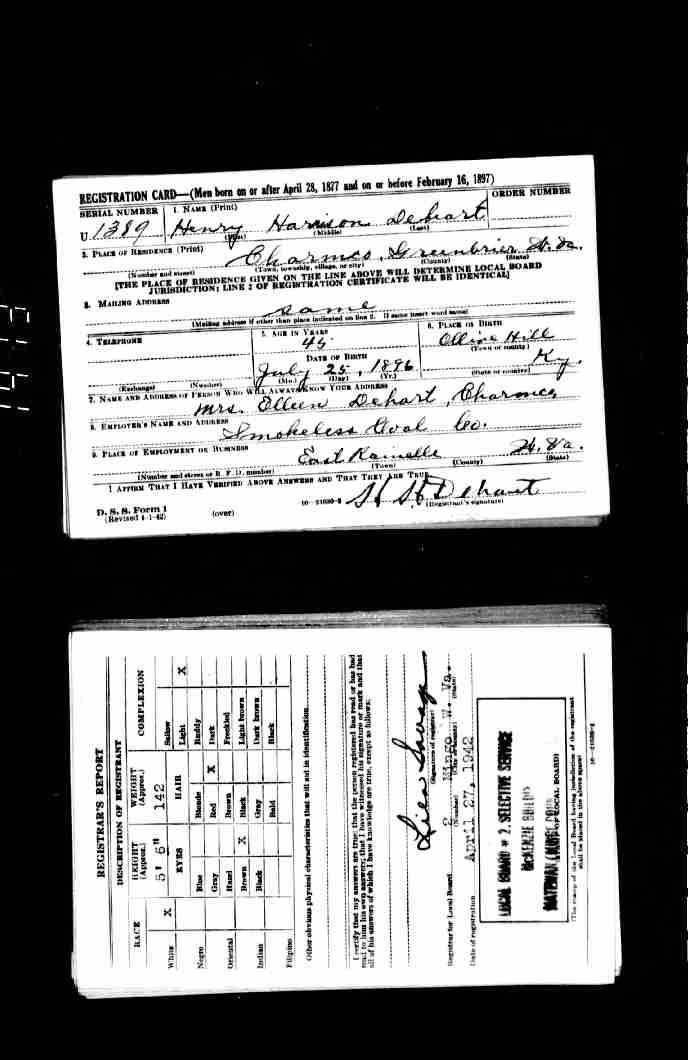 REGISTRATION CARD—(Men born on or after April 28, 1877 and on or before February 16, 1897)
SERIAL NUMBER 1. NAME (Print) ORDER NUMBER
U 1389 Henry Harrison Dehart
(First) (Middle) (Last)
2. PLACE OF RESIDENCE (Print)
Charmco Greenbrier W. Va.
(Number and street) (Town, township, village, or city) (County) (State)
[THE PLACE OF RESIDENCE GIVEN ON THE LINE ABOVE WILL DETERMINE LOCAL BOARD
JURISDICTION; LINE 2 OF REGISTRATION CERTIFICATE WILL BE IDENTICAL]
3. MAILING ADDRESS
Same
(Mailing address if other than place indicated on line 2. If same insert word same)
4. TELEPHONE 5. AGE IN YEARS 6. PLACE OF BIRTH
45 Hill
(Town or county)
DATE OF BIRTH
July 25, 1896 Ky.
(Exchange) (Number) (Mo.) (Day) (Yr.) (State or country)
7. NAME AND ADDRESS OF PERSON WHO WILL ALWAYS KNOW YOUR ADDRESS
Mrs. Dehart, Charmco
8. EMPLOYER'S NAME AND ADDRESS
Smokeless Coal Co.
9. PLACE OF EMPLOYMENT OR BUSINESS
East Rainelle W. Va.
(Number and street or R. F. D. number) (Town) (County) (State)
I AFFIRM THAT I HAVE VERIFIED ABOVE ANSWERS AND THAT THEY ARE TRUE.
H H Dehart
D. S. S. Form 1
(Revised 4-1-42) (over) 16—21630-2 (Registrant's signature)
REGISTRAR'S REPORT
DESCRIPTION OF REGISTRANT
RACE HEIGHT (Approx.) WEIGHT (Approx.) COMPLEXION
White X 5' 6" 142 Sallow
EYES HAIR Light X
Negro Blue Blonde Ruddy
Gray Red X Dark
Oriental Hazel Brown Freckled
Brown X Black Light brown
Indian Black Gray Dark brown
Bald Black
Filipino
Other obvious physical characteristics that will aid in identification
I certify that my answers are true; that the person registered has read or has had
read to him his own answers; that I have witnessed his signature or mark and that
all of his answers of which I have knowledge are true, except as follows:
(Signature of registrar)
Registrar for Local Board 2 Mingo W. Va.
(Number) (City or county) (State)
Date of registration April 27, 1942
LOCAL BOARD # 2. SELECTIVE SERVICE
McKENZIE BUILDING
MATEWAN
(The stamp of the Local Board having jurisdiction of the registrant
shall be placed in the above space)